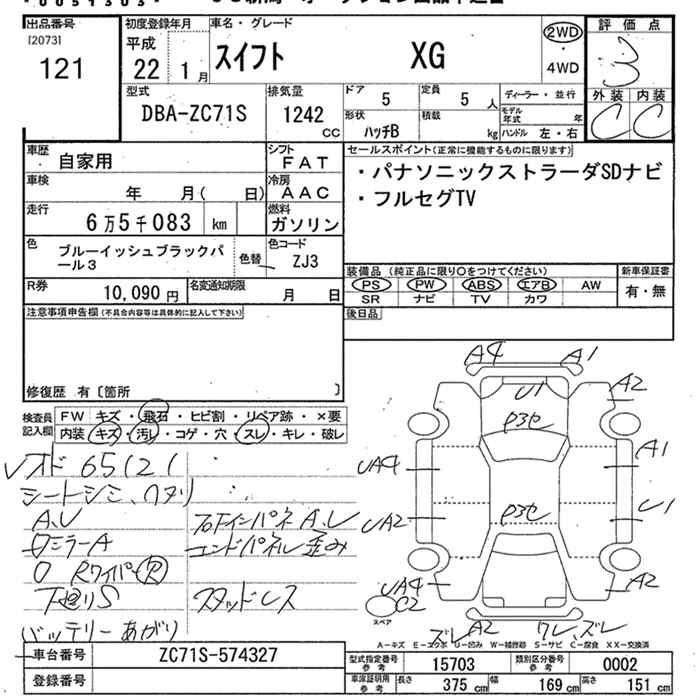 出品番号
[2073]
121
初度登録年月
平成
22 1月
車名・グレード
スイフト XG
2WD
4WD
評価点
3
外装 内装
C C
型式
DBA-ZC71S
排気量
1242
CC
ドア
5
定員
5 人
形状
ハッチB
積載
kg
ディーラー・並行
モデル年式 年
ハンドル 左・右
車歴
自家用
シフト
FAT
車検
年 月( 日)
冷房
AAC
走行
6万5千083 km
燃料
ガソリン
色
ブルーイッシュブラックパール3
色替
色コード
ZJ3
R券
10,090 円
名変通知期限
月 日
セールスポイント(正常に機能するものに限ります)
・パナソニックストラーダSDナビ
・フルセグTV
装備品 (純正品に限り○をつけてください)
PS PW ABS エアB AW
SR ナビ TV カワ
新車保証書
有・無
後日品
注意事項申告欄(不具合内容等は具体的に記入して下さい)
修復歴 有〔箇所 〕
検査員記入欄
FW キズ・飛石・ヒビ割・リペア跡・×要
内装 キズ・汚レ・コゲ・穴・スレ・キレ・破レ
オド 65121
シートシミ、ヘタリ
A、U
ミラーA
Rワイパー R
下廻りS
バッテリーあがり
エンドパネル歪み
スタッドレス
A4 A1
U1
A2
P3セ
A1
UA4
U1
UA2
P3セ
UA4
C2
A2
スペア
ズレ A2 ワレ、ズレ
A-キズ E-エクボ U-凹み W-補修跡 S-サビ C-腐食 XX-交換済
車台番号
ZC71S-574327
登録番号
型式指定番号 参考
15703
類別区分番号 参考
0002
車庫証明用 参考
長さ 375 cm
幅 169 cm
高さ 151 cm